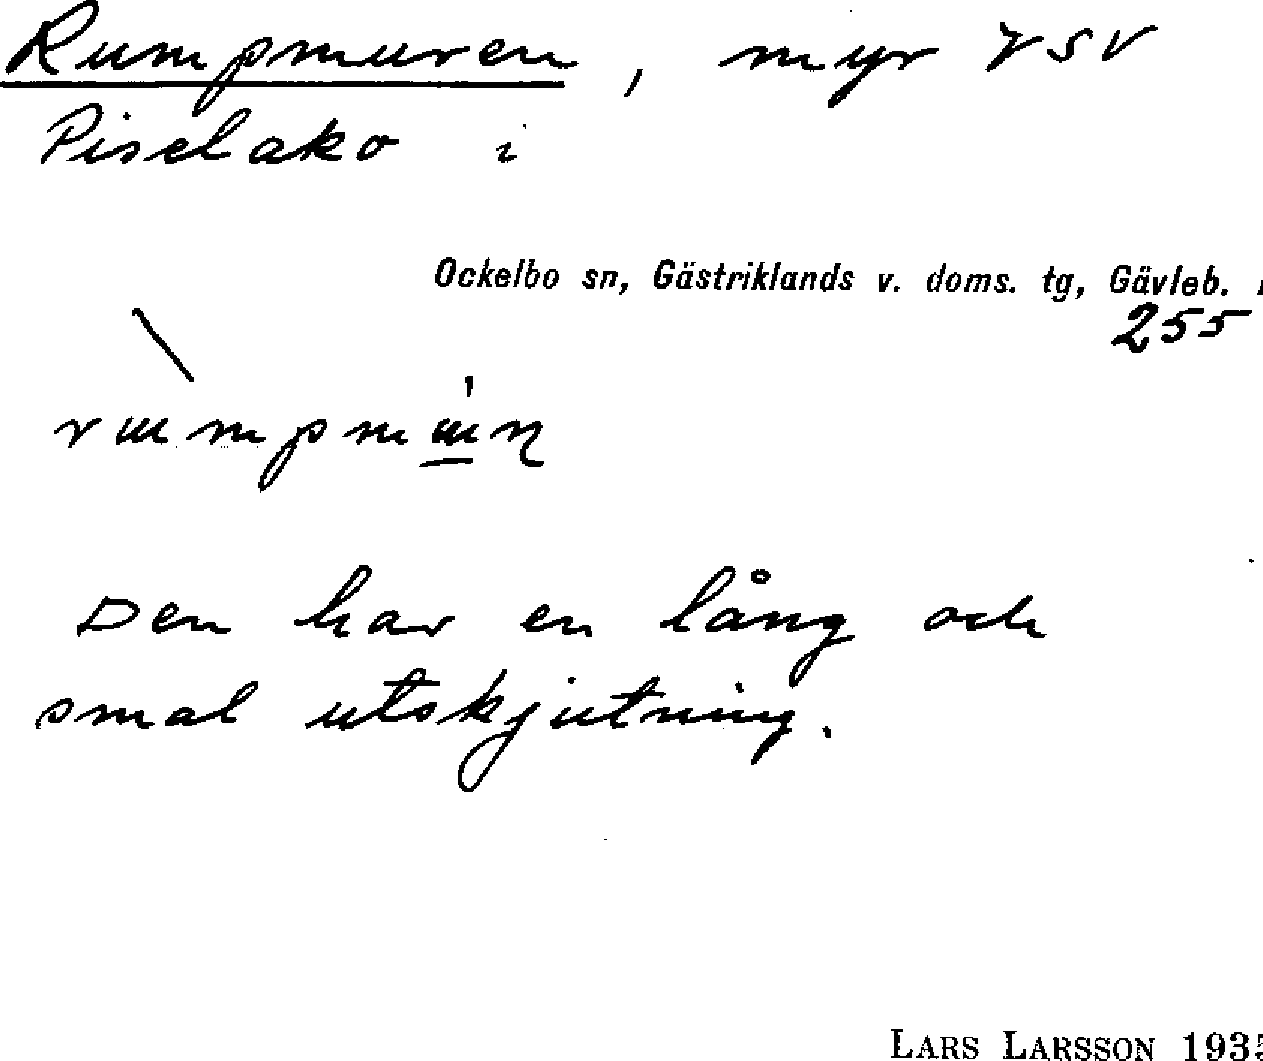 Rumpmuren, myr VSV
Piselako i
Ockelbo sn, Gästriklands v. doms. tg, Gävleb.
255
Den har en lång och
smal utskjutning.
LARS LARSSON 1935